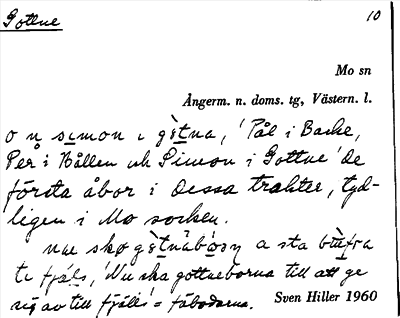 Gottne 10
Mo sn
Ångerm. n. doms. tg, Västern. l.
o n sımon ı gètna, 'Pål i Backe,
Per i Hållen och Simon i Gottne' de
första åbor i dessa trakter, tyd-
ligen i Mo socken.
nue skø a sta
te fjäls, 'Nu ska gottneborna till att ge
sig av till fjälls' = fäbodarna. Sven Hiller 1960